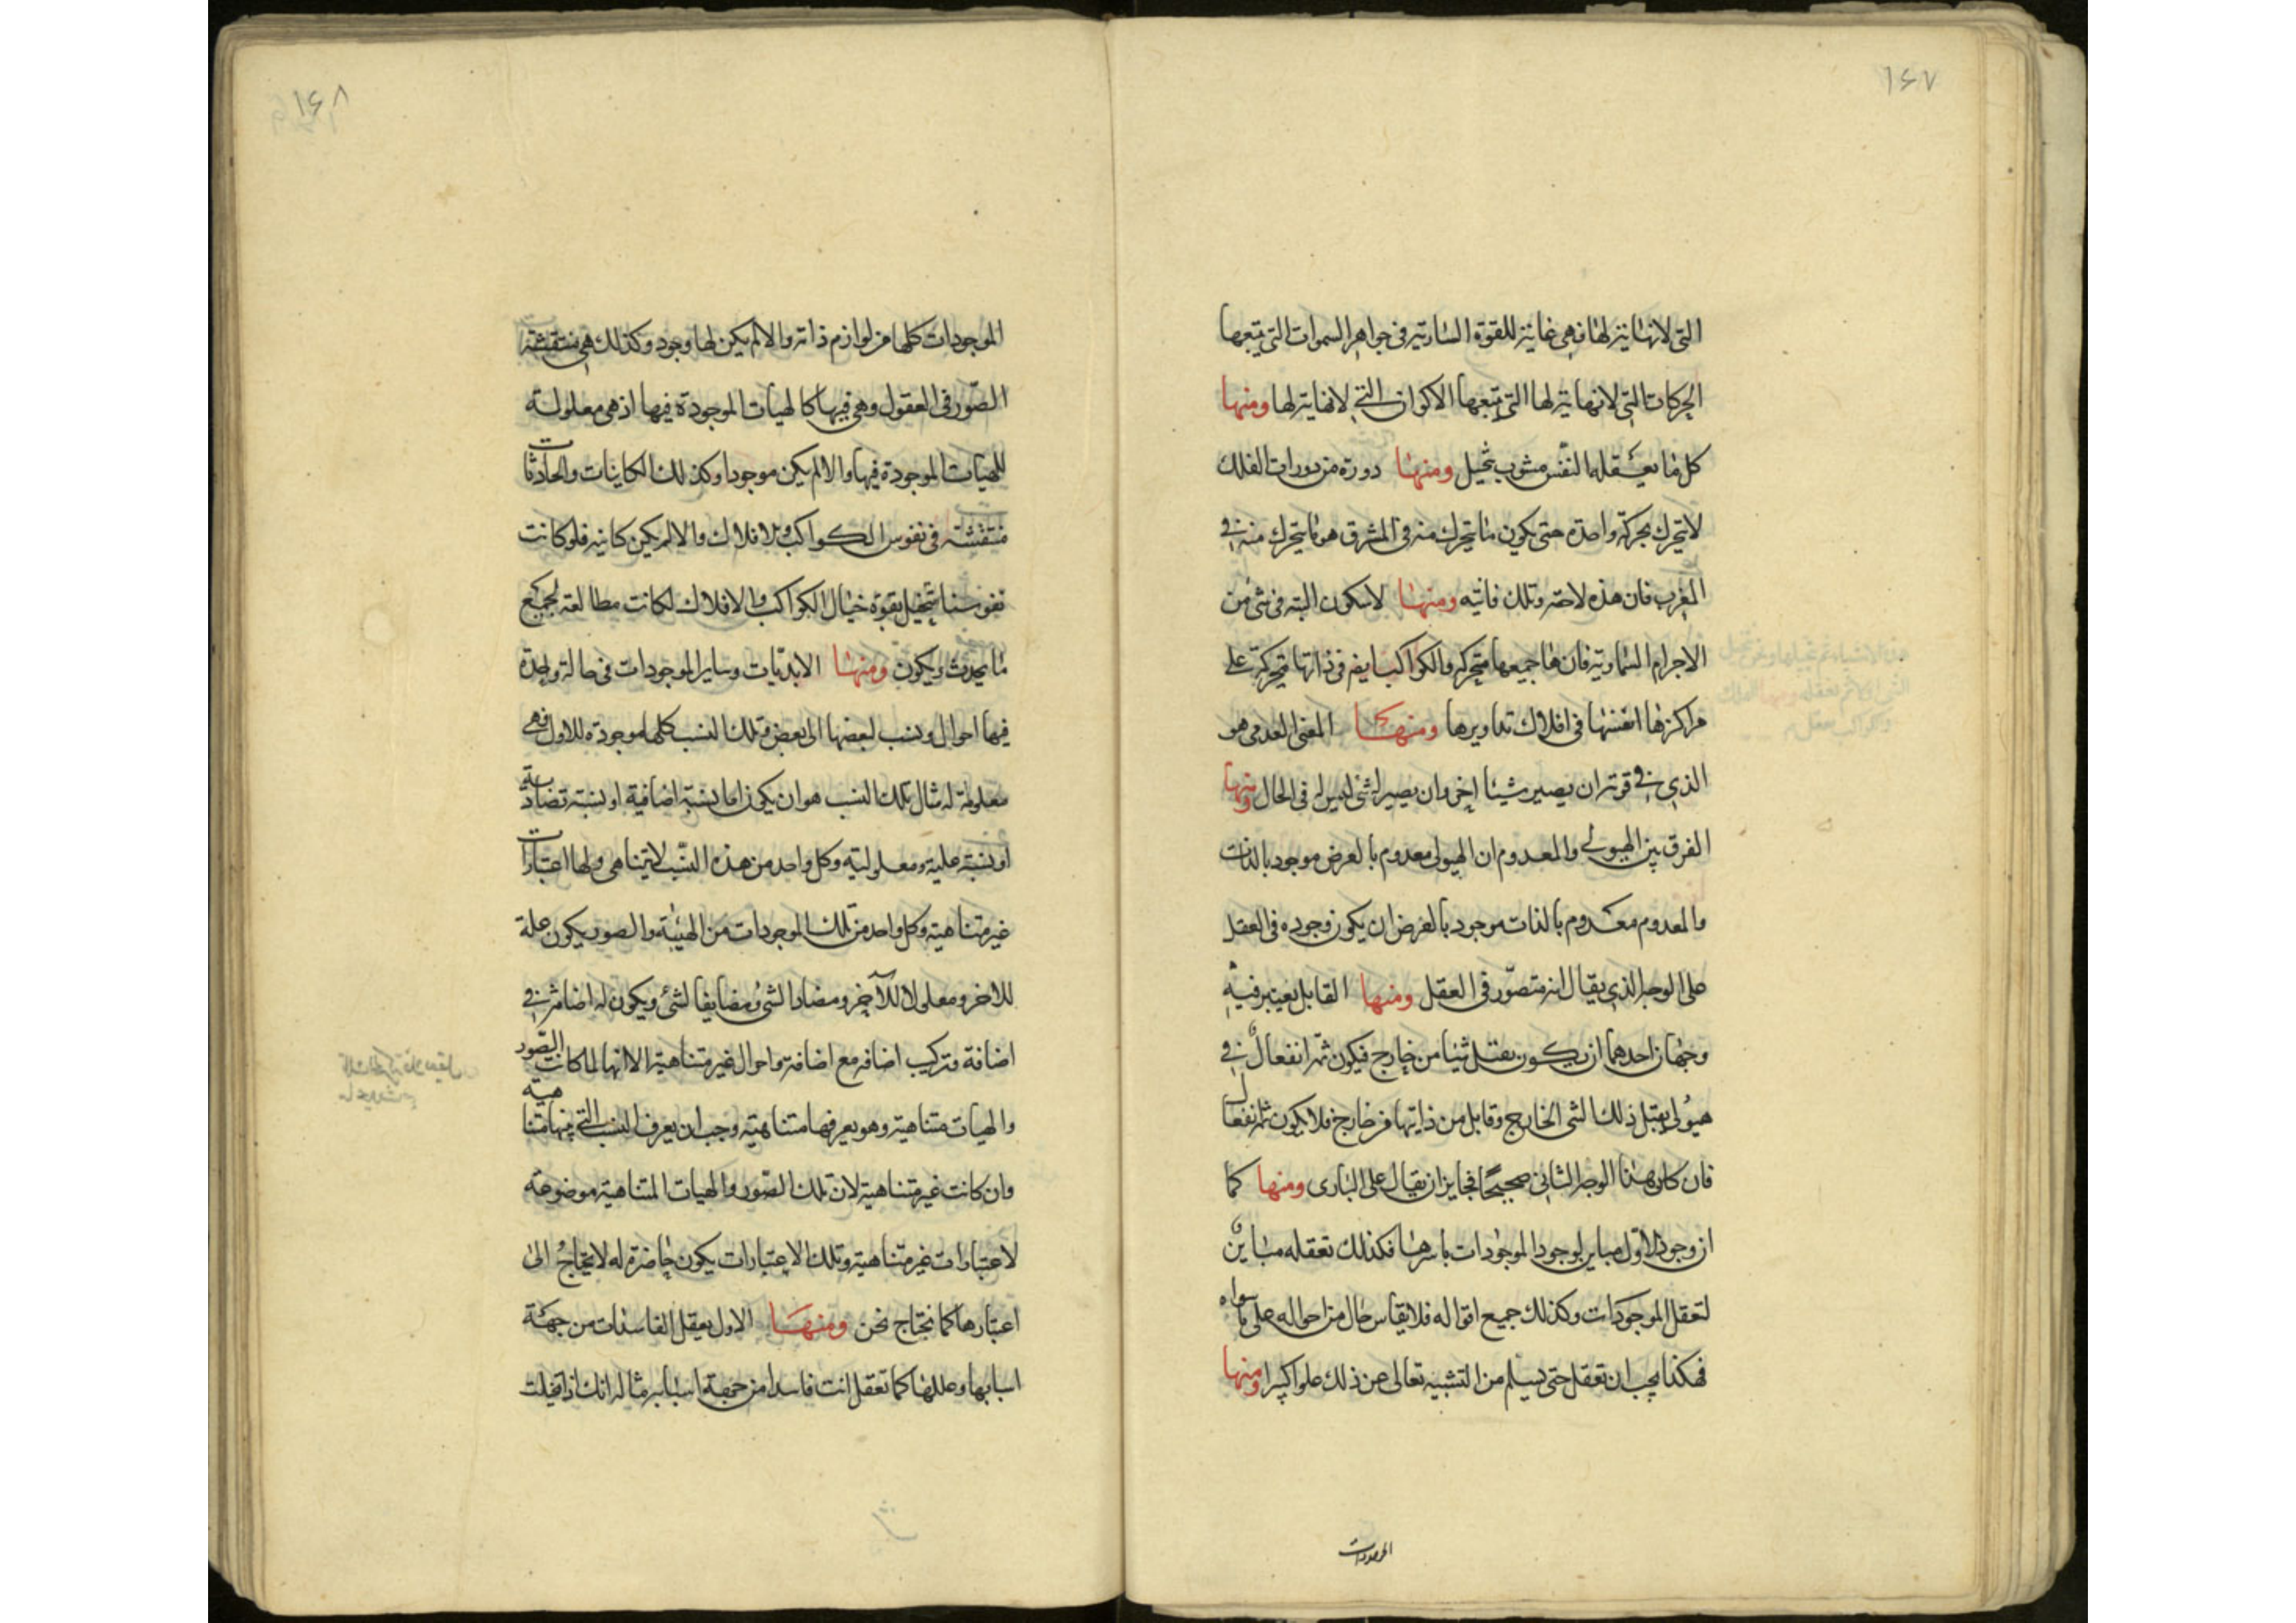 ١٤٧
التي لانهاية لها فهي غاية للقوة السارية في جواهر السموات التي يتبعها
الحركات التي لانهاية لها التي يتبعها الاكوان التي لانهاية لها ومنها
كل ما يعقله النفس مشوب بتخيل ومنها دورة من دورات الفلك
لا تتحرك بحركة واحدة حتى يكون ما يتحرك منه في المشرق هو ما يتحرك منه في
المغرب فان هذه لاحقه وتلك فانيه ومنها لا سكون البته في شئ من
الاجرام السماوية فان ها جميعها متحركه والكواكب ايضا في ذاتها متحركة على
مراكزها انفسها في افلاك تداويرها ومنها المعنى العدمي هو
الذي في قوته ان يصير شيئا اخر وان يصير له شئ ليس له في الحال ومنها
الفرق بين الهيولي والمعدوم ان الهيولى معدوم بالعرض موجود بالذات
والمعدوم معدوم بالذات موجود بالعرض ان يكون وجوده في العقل
على الوجه الذي يقال انه متصور في العقل ومنها القابل يعتبر فيه
وجهان احدهما ان يكون يقبل شيئا من خارج فيكون ثمه انفعال في
هيولى يقبل ذلك الشئ الخارج وقابل من ذاتها من خارج فلا يكون ثم انفعال
فان كان هذا الوجه الثاني صحيحا فجايز ان يقال على البارى ومنها كما
ان وجود الاول مباين لوجود الموجودات باسرها فكذلك تعقله مباين
لتعقل الموجودات وكذلك جميع اقواله فلا يقاس حال من احواله على ما سواه
فهكذا يجب ان تعقل حتى يسلم من التشبيه تعالى عن ذلك علوا كبيرا ومنها
الموجودات
١٤٨
الموجودات كلها من لوازم ذاته والا لم يكن لها وجود وكذلك هي منتقشة
الصور في العقول وهي فيها كالهيات الموجودة فيها اذ هي معلولة
للهيات الموجودة فيها والا لم يكن موجودا وكذلك الكاينات والحادثات
منتقشة في نفوس الكواكب والافلاك والا لم يكن كاينه فلو كانت
نفوسنا تتخيل بقوة خيال الكواكب والافلاك لكانت مطالعة لجميع
ما يحدث ويكون ومنها الابديات وساير الموجودات في حالة واحدة
فيها احوال ونسب لبعضها الى بعض وتلك النسب كلها موجودة للاول فهي
معلومة له مثال تلك النسب هو ان يكون اما نسبة اضافية او نسبة تضادية
او نسبة علية ومعلولية وكل واحد من هذه النسب لا يتناهى ولها اعتبارات
غير متناهية وكل واحد من تلك الموجودات من الهيئة والصور يكون علة
للاخر ومعلولا للاخر ومضادا لشئ ومضايفا لشئ ويكون له اضافة في
اضافة وتركيب اضافه مع اضافة واحوال غير متناهية الا انها لما كانت الصور
والهيات متناهية وهو يعرفها متناهية وجب ان يعرف النسب التي بينها متناهية
وان كانت غير متناهية لان تلك الصور والهيات المتناهية موضوعه
لاعتبارات غير متناهية وتلك الاعتبارات يكون حاضرة له لا يحتاج الى
اعتبارها كما نحتاج نحن ومنها الاول يعقل الفاسدات من جهة
اسبابها وعللها كما تعقل انت فاسدا من جهة اسبابه مثاله انك اذا تخيلت